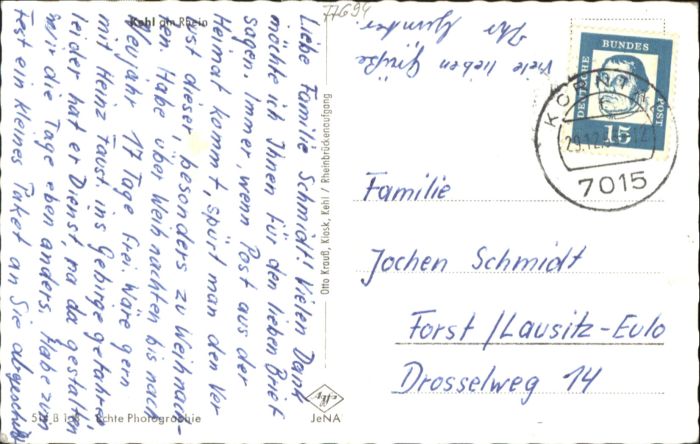 Kehl am Rhein
Liebe Familie Schmidt! Vielen Dank
möchte ich Ihnen für den lieben Brief
sagen. Immer, wenn Post aus der
Heimat kommt, spürt man den Ver
lust dieser, besonders zu Weihnach-
ten. Habe über Weihnachten bis nach
Neujahr 17 Tage frei. Wäre gern
mit Heinz Faust ins Gebirge gefahren,
leider hat er Dienst, na da gestalten
wir die Tage eben anders. Habe zum
Fest ein kleines Paket an Sie abgeschickt
Viele lieben Grüße
Ihr Günter
77694
Otto Krauß, Kiosk, Kehl / Rheinbrückenaufgang
DEUTSCHE BUNDES POST
15
KORNTAL
29.12.
7015
Familie
Jochen Schmidt
Forst/Lausitz-Eulo
Drosselweg 14
echte Photographie
JeNA